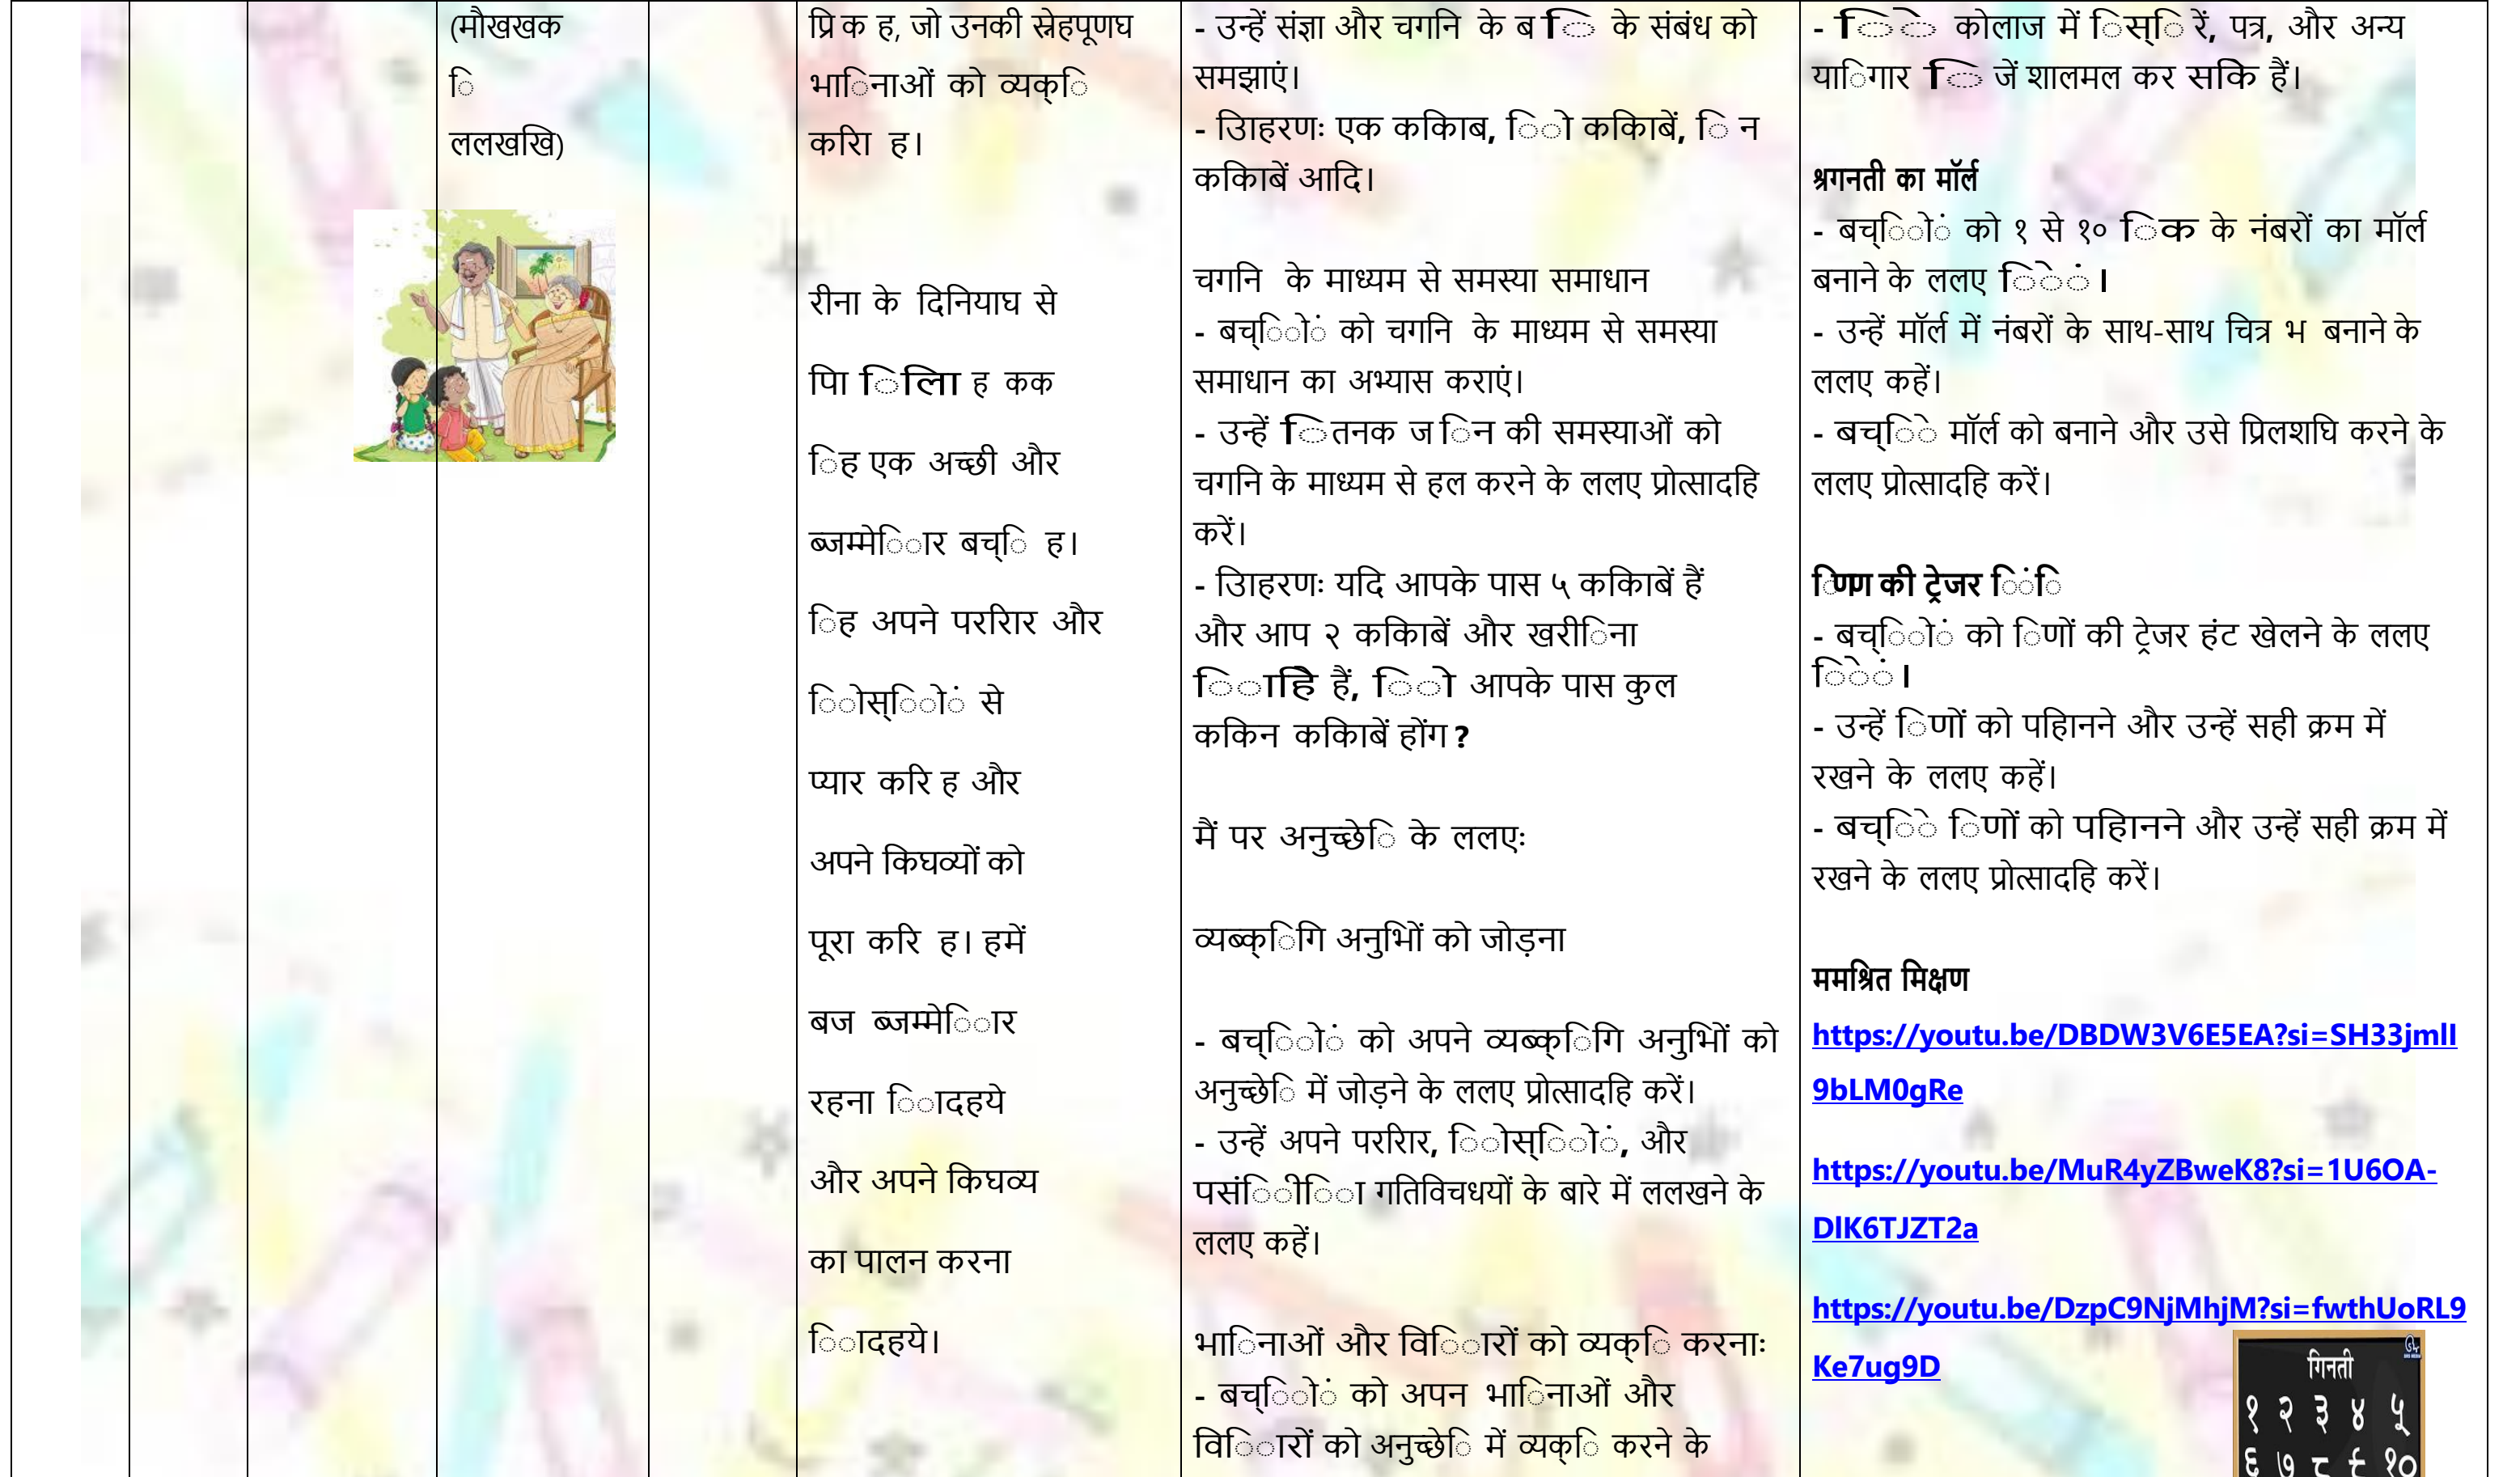 (मौखखक
ि
ललखखि)
प्रि क ह, जो उनकी स्नेहपूणघ
भािनाओं को व्यक्ि
करिा ह।
रीना के दिनियाघ से
पिा ििलिा ह कक
िह एक अच्छी और
ब्जम्मेिार बच्ि ह।
िह अपने पररिार और
िोस्िों से
प्यार करि ह और
अपने किघव्यों को
पूरा करि ह। हमें
बज ब्जम्मेिार
रहना िादहये
और अपने किघव्य
का पालन करना
िादहये।
- उन्हें संज्ञा और चगनि के ब ि के संबंध को
समझाएं।
- उिाहरणः एक ककिाब, िो ककिाबें, ि न
ककिाबें आदि।
चगनि के माध्यम से समस्या समाधान
- बच्िों को चगनि के माध्यम से समस्या
समाधान का अभ्यास कराएं।
- उन्हें ितनक ज िन की समस्याओं को
चगनि के माध्यम से हल करने के ललए प्रोत्सादहि
करें।
- उिाहरणः यदि आपके पास ५ ककिाबें हैं
और आप २ ककिाबें और खरीिना
िाहिे हैं, िो आपके पास कुल
ककिन ककिाबें होंग ?
मैं पर अनुच्छेि के ललएः
व्यब्क्िगि अनुभिों को जोड़ना
- बच्िों को अपने व्यब्क्िगि अनुभिों को
अनुच्छेि में जोड़ने के ललए प्रोत्सादहि करें।
- उन्हें अपने पररिार, िोस्िों, और
पसंिीिा गतिविचधयों के बारे में ललखने के
ललए कहें।
भािनाओं और वििारों को व्यक्ि करनाः
- बच्िों को अपन भािनाओं और
वििारों को अनुच्छेि में व्यक्ि करने के
- िे कोलाज में िस्ि रें, पत्र, और अन्य
यािगार ि जें शालमल कर सकिे हैं।
श्रगनती का मॉर्ल
- बच्िों को १ से १० िक के नंबरों का मॉर्ल
बनाने के ललए िें।
- उन्हें मॉर्ल में नंबरों के साथ-साथ चित्र भ बनाने के
ललए कहें।
- बच्िे मॉर्ल को बनाने और उसे प्रिलशघि करने के
ललए प्रोत्सादहि करें।
िणण की ट्रेजर िंि
- बच्िों को िणों की ट्रेजर हंट खेलने के ललए
िें।
- उन्हें िणों को पहिानने और उन्हें सही क्रम में
रखने के ललए कहें।
- बच्िे िणों को पहिानने और उन्हें सही क्रम में
रखने के ललए प्रोत्सादहि करें।
ममश्रित मिक्षण
https://youtu.be/DBDW3V6E5EA?si=SH33jmlI
9bLM0gRe
https://youtu.be/MuR4yZBweK8?si=1U6OA-
DlK6TJZT2a
https://youtu.be/DzpC9NjMhjM?si=fwthUoRL9
Ke7ug9D
गिनती
१ २ ३ ४ ५
६ ७ ८ ९ १०